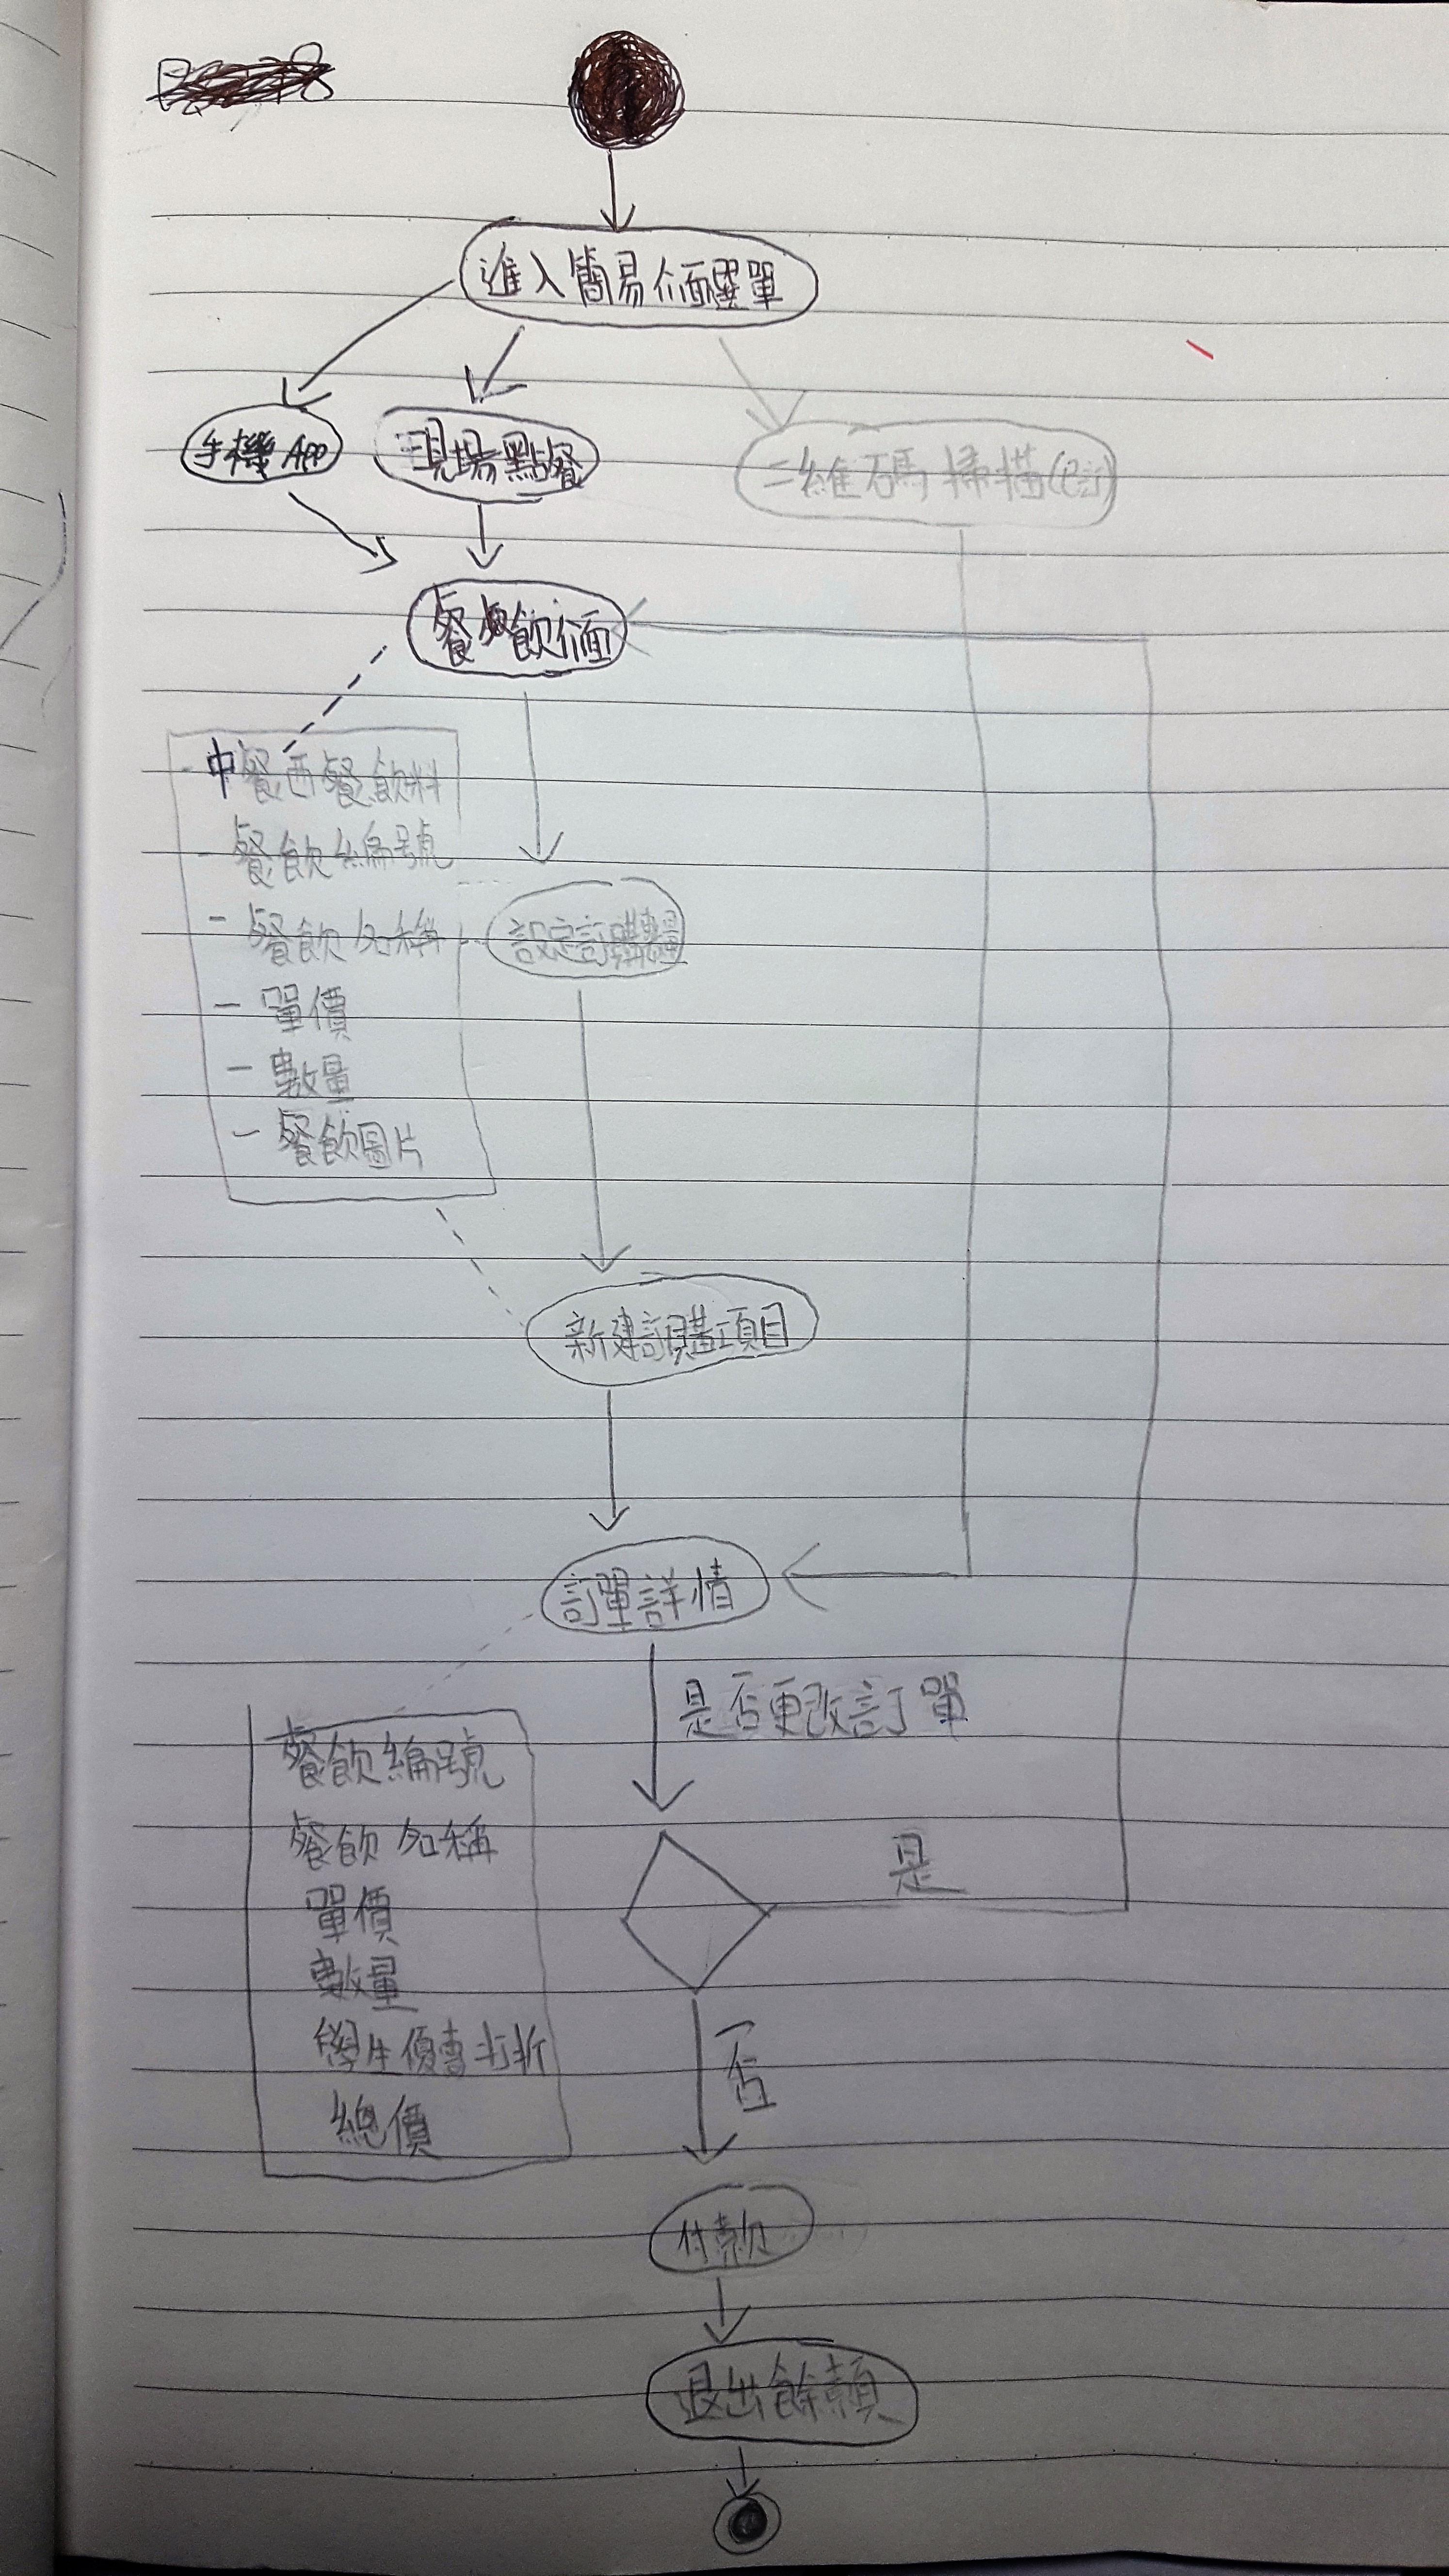 進入簡易介面選單
手機 App
現場點餐
二維碼掃描(已訂)
餐飲介面
中餐西餐飲料
- 餐飲編號
- 餐飲名稱
- 單價
- 數量
- 餐飲圖片
設定訂購數量
新建訂購項目
訂單詳情
是否更改訂單
餐飲編號
餐飲名稱
單價
數量
學生優惠打折
總價
是
否
付款
退出餘額